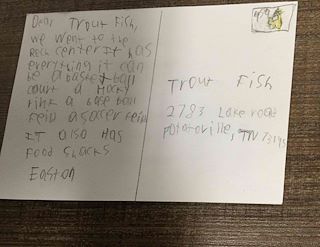 Dear Trout Fish,
we went to the
Rock center It has
everything it can
be a basket ball
court a Hocky
rink a base ball
feild a soccer feild
IT also Has
Food Shacks
Easton
Trout Fish
2783 Lake road
Potatoville, TN